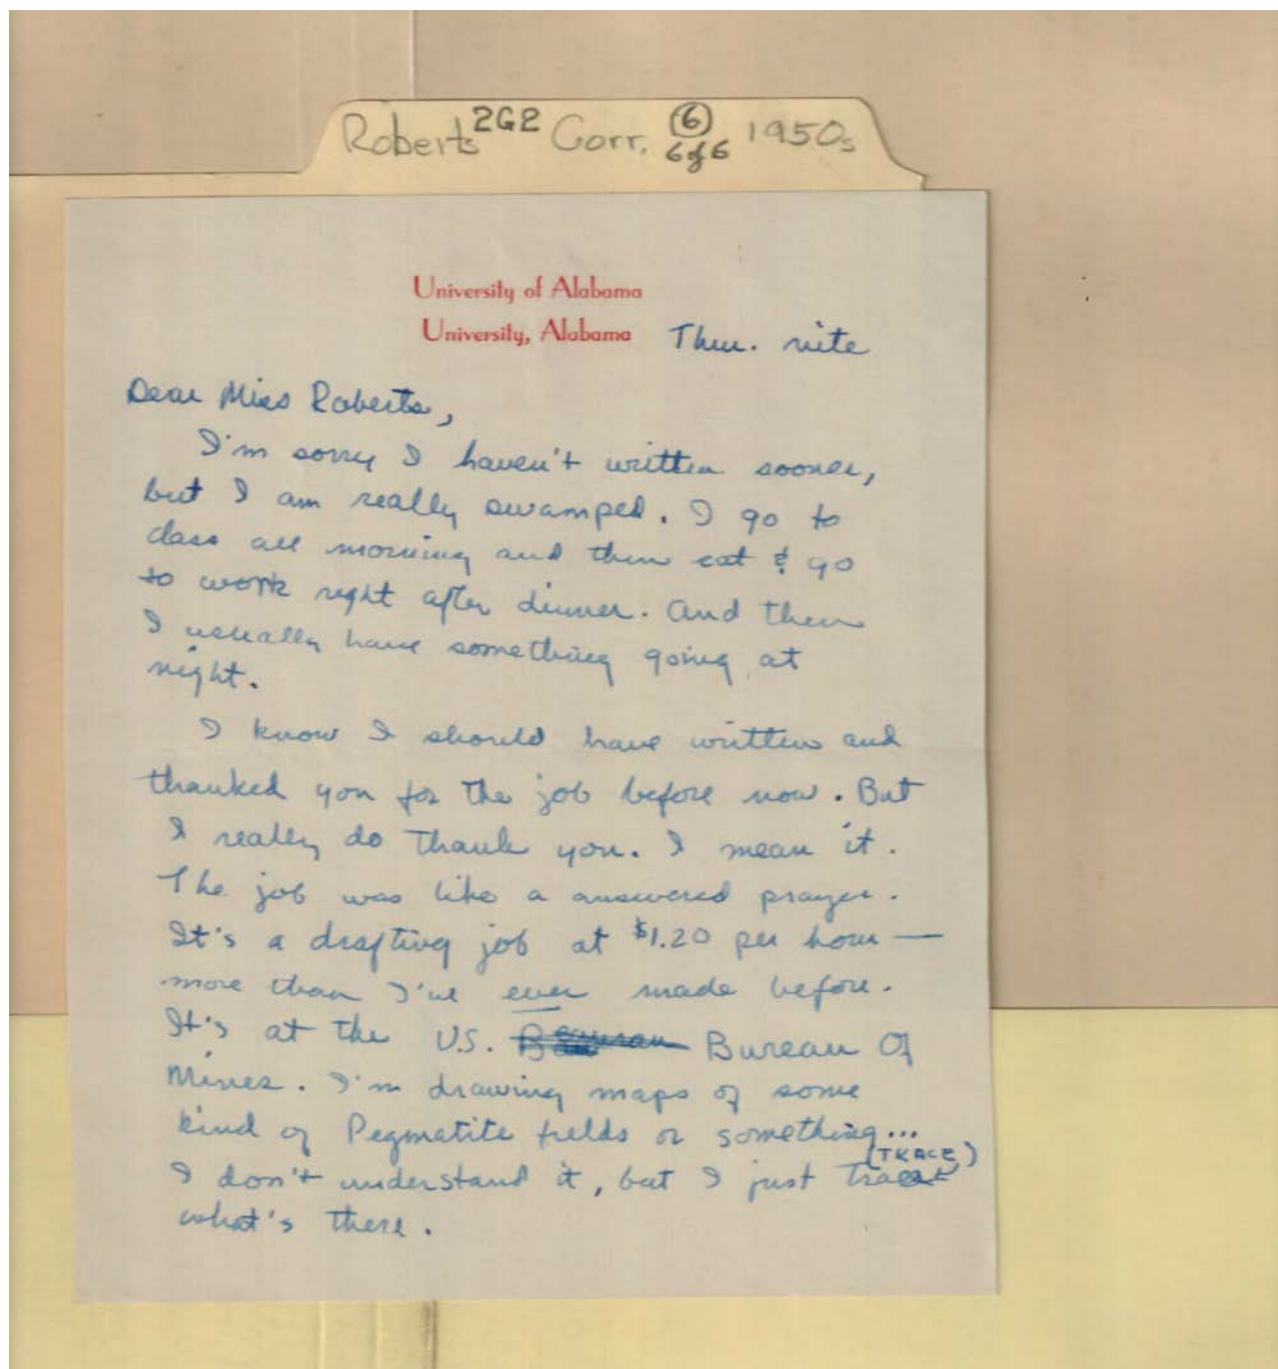 Roberts 2G2 Corr. 6 1950s
6 of 6
University of Alabama
University, Alabama Thur. nite
Dear Miss Roberts,
I'm sorry I haven't written sooner,
but I am really swamped. I go to
class all morning and then eat & go
to work right after dinner. And then
I usually have something going at
night.
I know I should have written and
thanked you for the job before now. But
I really do thank you. I mean it.
The job was like a answered prayer.
It's a drafting job at $1.20 per hour —
more than I've ever made before.
It's at the U.S. Bureau Of
Mines. I'm drawing maps of some
kind of Pegmatite fields or something...
(TRACE)
I don't understand it, but I just
what's there.